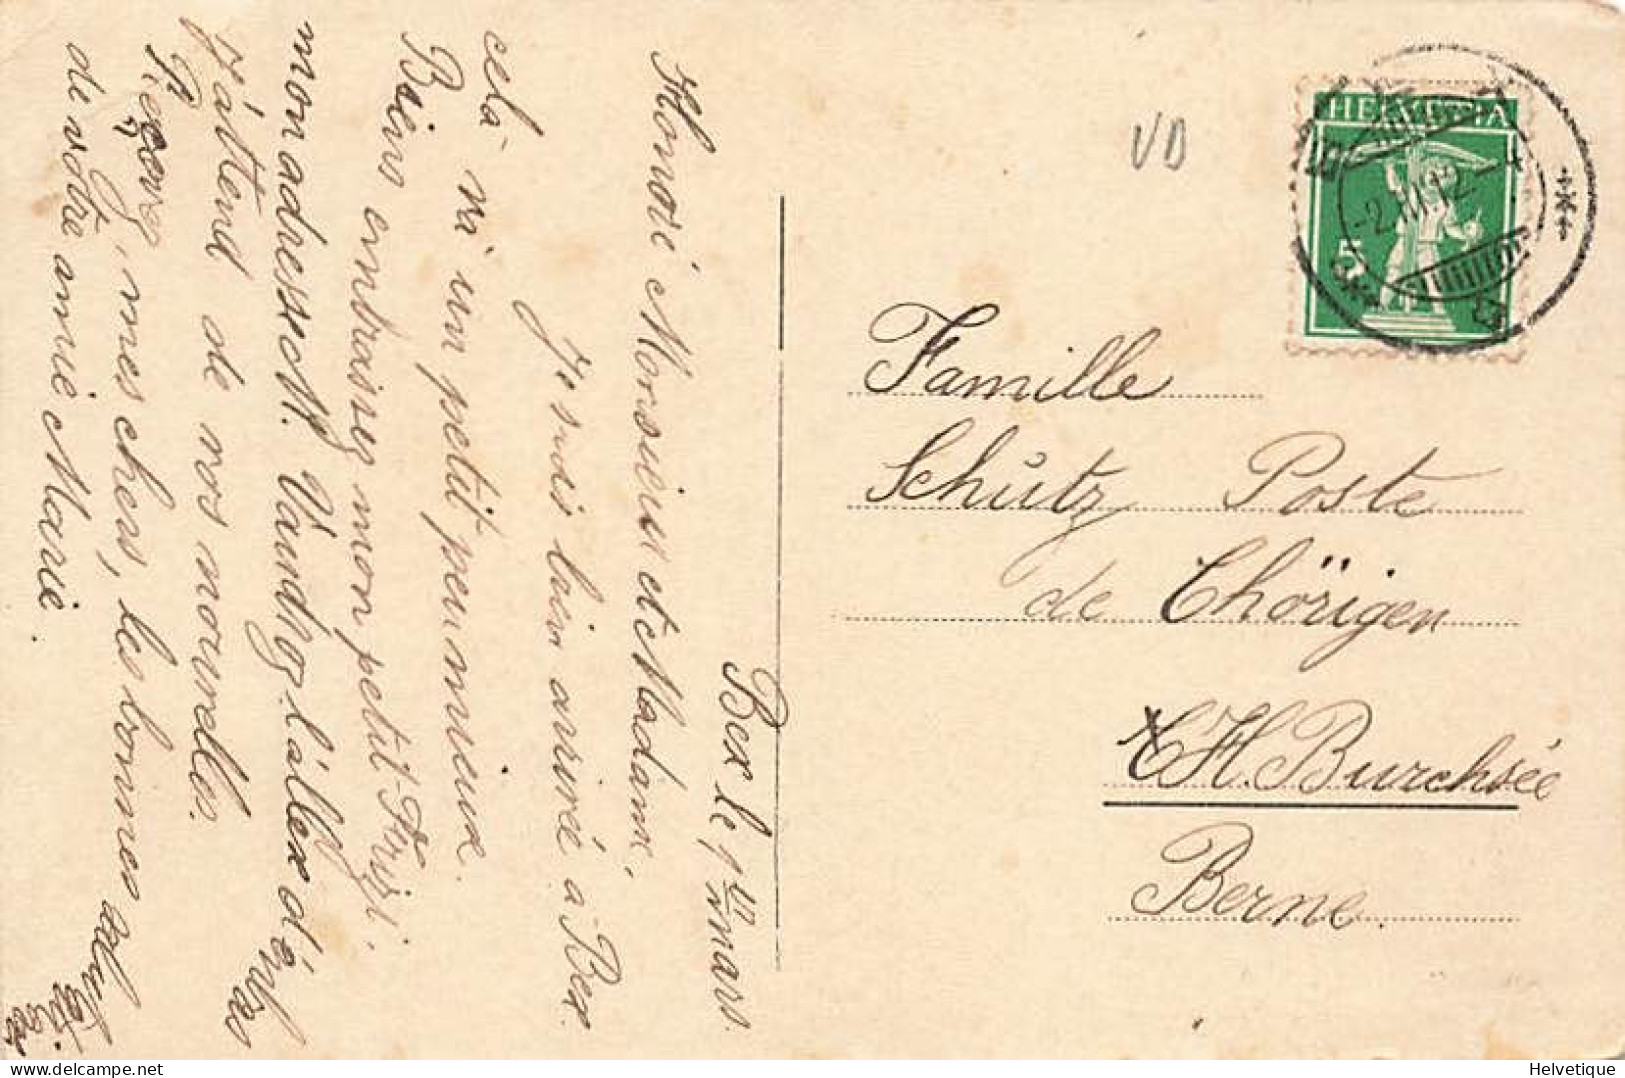 Bex le 1er mars.
Honoré Monsieur et Madame,
Je suis bien arrivé à Bex
cela va un petit peu mieux.
Bien embrassez mon petit Fritz,
mon adresse M. Vaudroz-l'allex d'
J'attend de nos nouvelles.
Recevez, mes chers, les bonnes salut
de votre amie Marie.
VD
HELVETIA
5
-2.III.12-4
Famille
Schütz Poste
de Thörigen
H. Burchsée
Berne.
delcampe.net
Helvetique